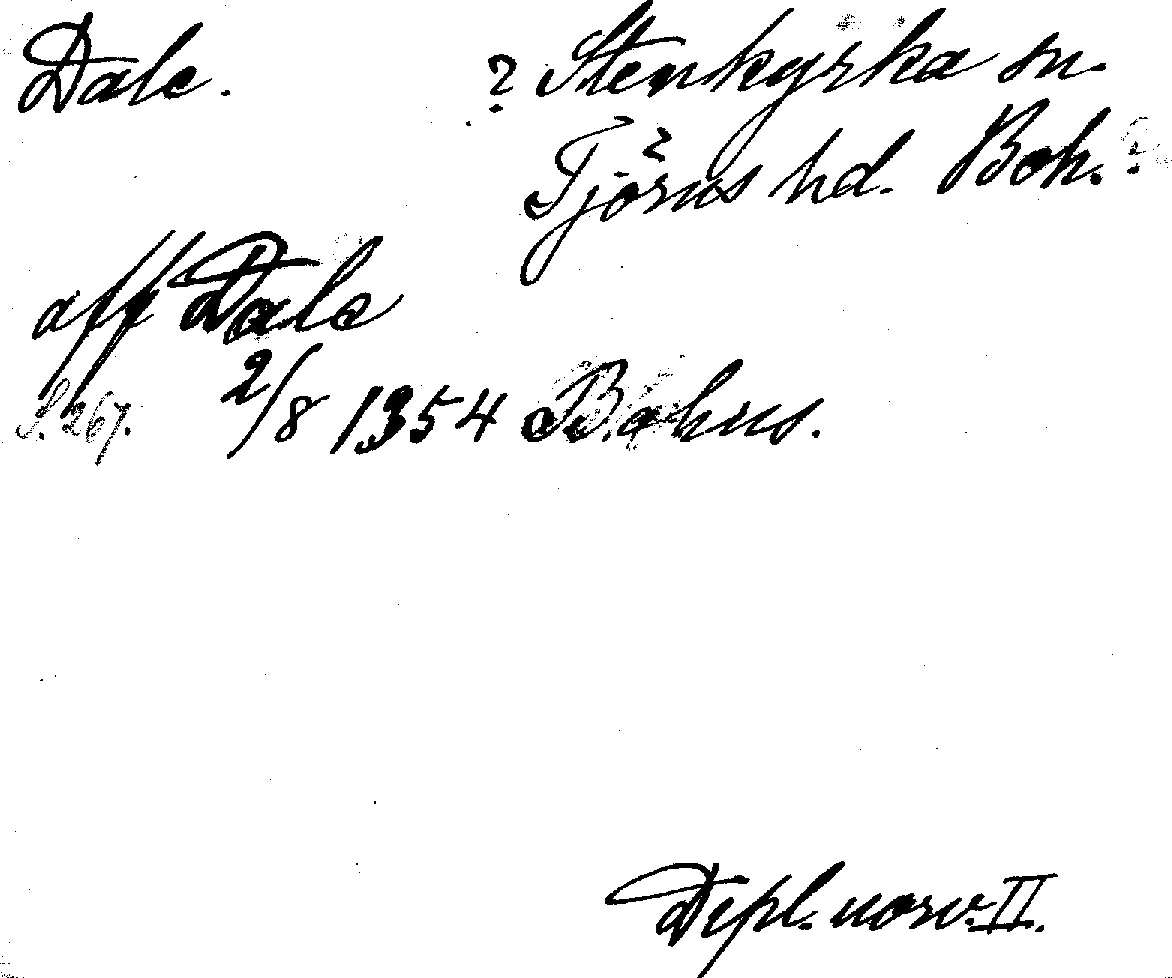 Dale. ? Stenkyrka sn.
Tjörns hd. Boh. ?
aff Dale
S. 267. 2/8 1354 Bohus.
Dipl. norv. II.